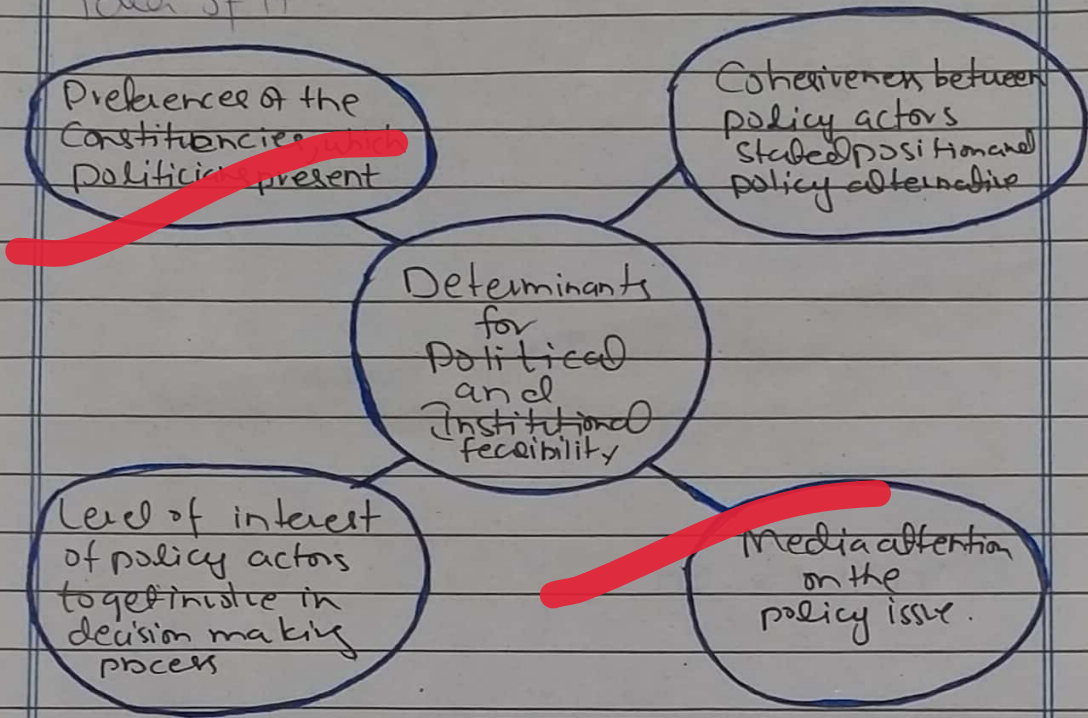 idea of it
Preferences of the
Constituencies, which
politicians present
Cohesiveness between
policy actors
stated position and
policy alternative
Determinants
for
Political
and
Institutional
feasibility
Level of interest
of policy actors
to get involve in
decision making
process
Media attention
on the
policy issue.